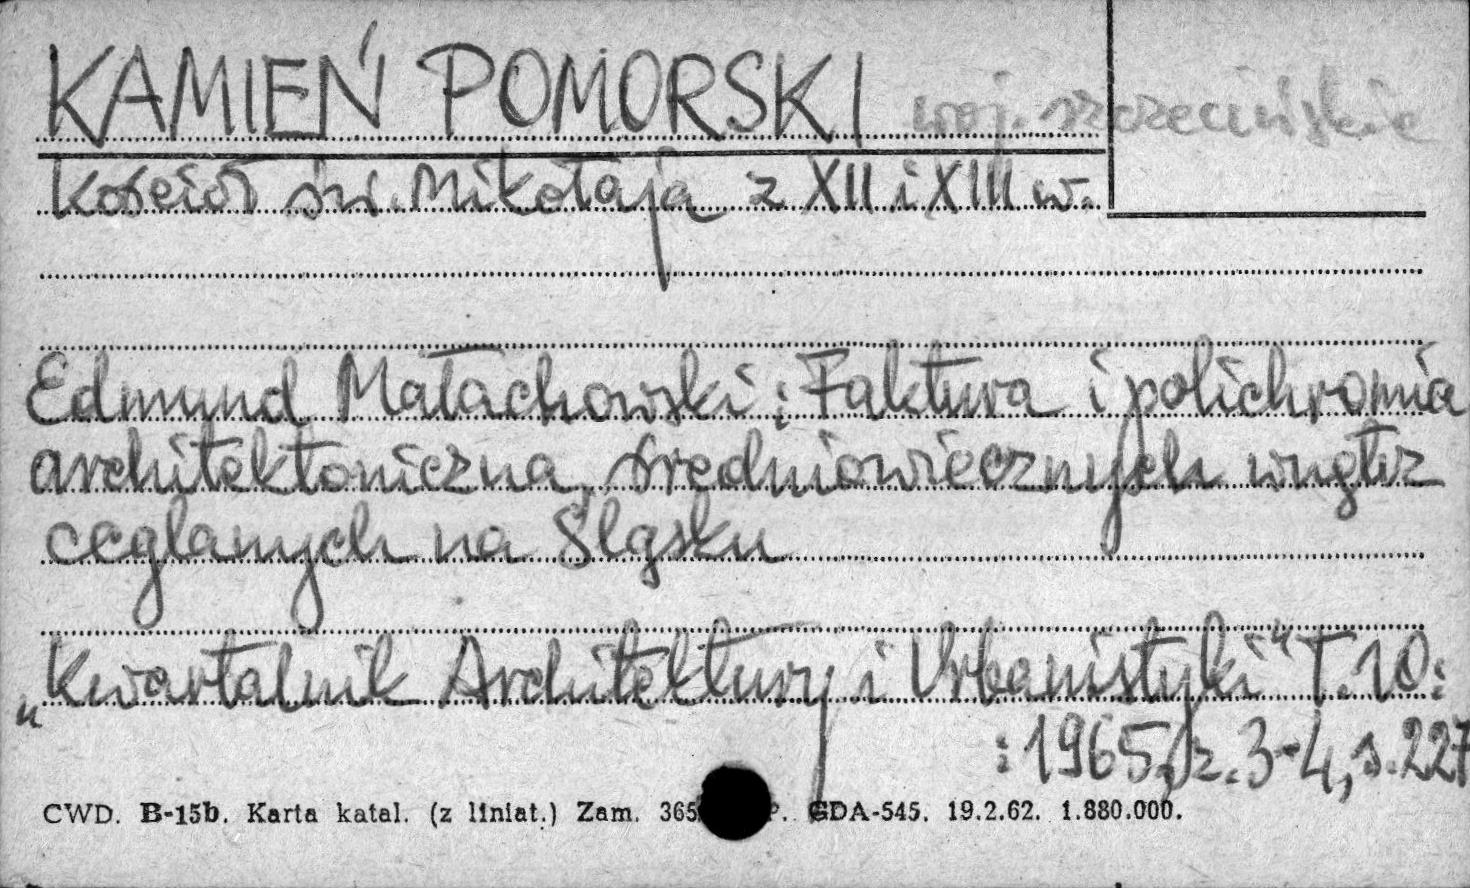 KAMIEŃ POMORSKI woj. szczecińskie
Kościół św. Mikołaja z XII i XIII w.
Edmund Małachowski: Faktura i polichromia
architektoniczna średniowiecznych wnętrz
ceglanych na Śląsku
„Kwartalnik Architektury i Urbanistyki" T. 10:
: 1965, z. 3-4, s. 227
CWD. B-15b. Karta katal. (z liniat.) Zam. 365 P. GDA-545. 19.2.62. 1.880.000.